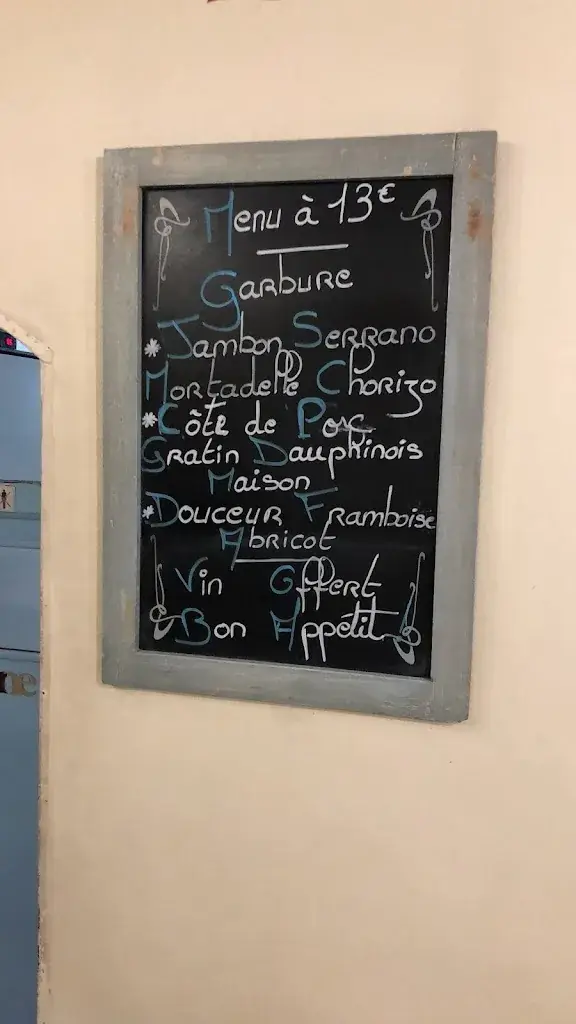 Menu à 13€
Garbure
* Jambon Serrano
Mortadelle Chorizo
* Côte de Porc
Gratin Dauphinois
Maison
* Douceur Framboise
Abricot
Vin Offert
Bon Appétit